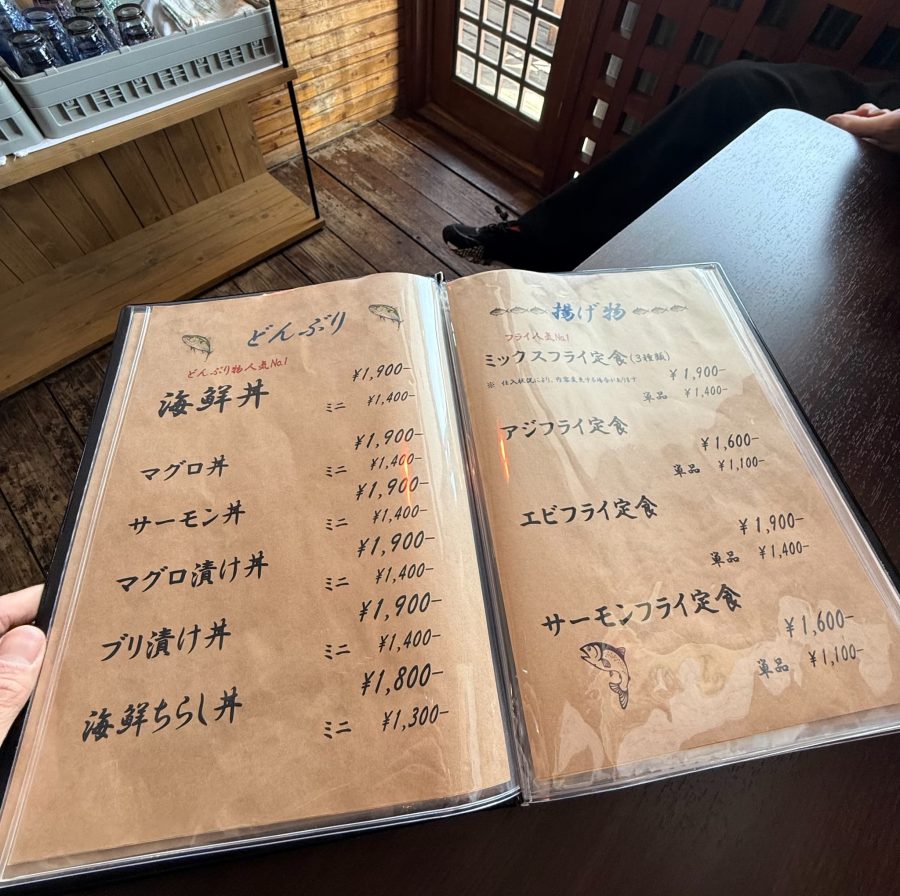 どんぶり
どんぶり物人気No.1
海鮮丼 ¥1,900-
ミニ ¥1,400-
マグロ丼 ¥1,900-
ミニ ¥1,400-
サーモン丼 ¥1,900-
ミニ ¥1,400-
マグロ漬け丼 ¥1,900-
ミニ ¥1,400-
ブリ漬け丼 ¥1,900-
ミニ ¥1,400-
海鮮ちらし丼 ¥1,800-
ミニ ¥1,300-
揚げ物
フライ人気No.1
ミックスフライ定食(3種類)
※ 仕入状況により、内容変更する場合があります
¥1,900-
単品 ¥1,400-
アジフライ定食
¥1,600-
単品 ¥1,100-
エビフライ定食
¥1,900-
単品 ¥1,400-
サーモンフライ定食
¥1,600-
単品 ¥1,100-